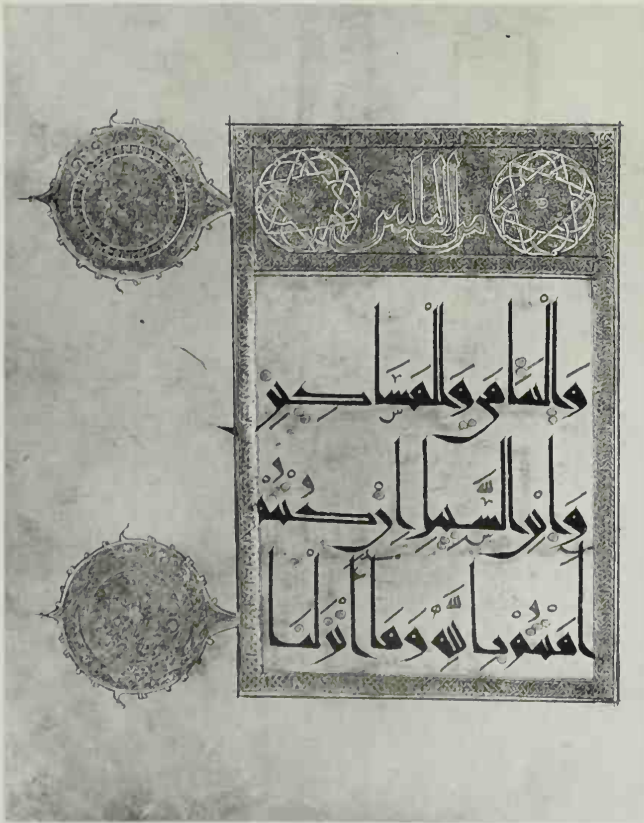 من
وَالْيَتَامَى وَالْمَسَاكِينِ
وَابْنِ السَّبِيلِ إِنْ كُنْتُمْ
آمَنْتُمْ بِاللَّهِ وَمَا أَنْزَلْنَا